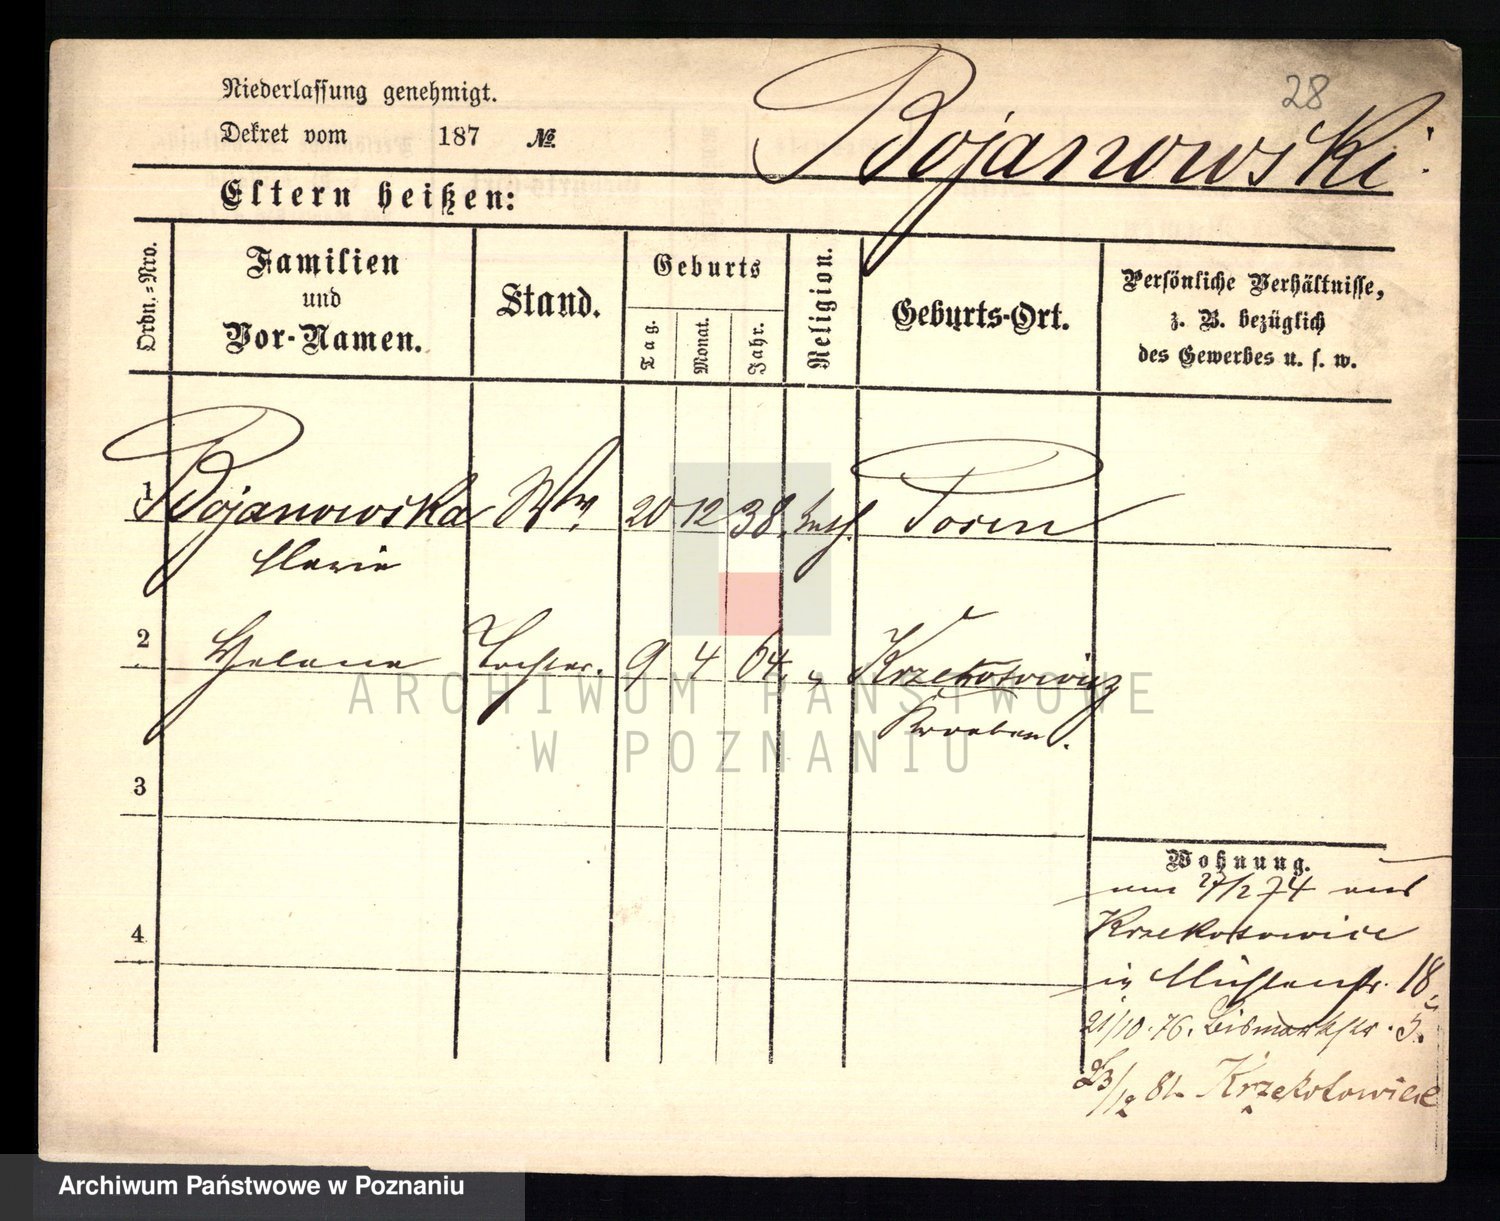 28
Niederlassung genehmigt.
Dekret vom 187 №
Bojanowski
Eltern heißen:
Ordn.-Nro.
Familien und Vor-Namen.
Stand.
Geburts
Tag.
Monat.
Jahr.
Religion.
Geburts-Ort.
Persönliche Verhältnisse, z. B. bezüglich des Gewerbes u. s. w.
1 Bojanowska Ww. 20 12 38. kath. Posen
Marie
2 Helene Tochter. 9 4 64. " Krzekotowice
Kroeben.
3
4
Wohnung.
am 27/2 74 aus
Krzekotowice
in Mühlenstr. 18.
21/10. 76. Bismarkstr. 5.
23/12 81 Krzekotowice
ARCHIWUM PAŃSTWOWE
W POZNANIU
Archiwum Państwowe w Poznaniu